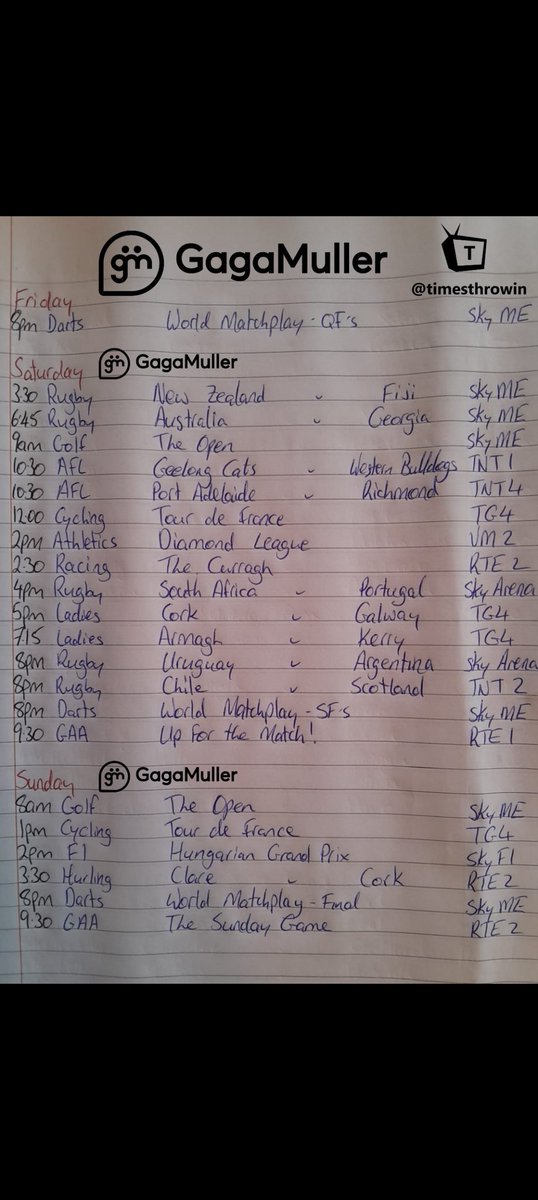 gm GagaMuller
T
@timesthrowin
Friday
8pm Darts World Matchplay - QF's Sky ME
Saturday gm GagaMuller
3:30 Rugby New Zealand v Fiji Sky ME
6:45 Rugby Australia v Georgia Sky ME
9am Golf The Open Sky ME
10:30 AFL Geelong Cats v Western Bulldogs TNT 1
10:30 AFL Port Adelaide v Richmond TNT 4
12:00 Cycling Tour de France TG4
2pm Athletics Diamond League VM 2
2:30 Racing The Curragh RTE 2
4pm Rugby South Africa v Portugal Sky Arena
5pm Ladies Cork v Galway TG4
7:15 Ladies Armagh v Kerry TG4
8pm Rugby Uruguay v Argentina Sky Arena
8pm Rugby Chile v Scotland TNT 2
8pm Darts World Matchplay - SF's Sky ME
9:30 GAA Up For the Match! RTE 1
Sunday gm GagaMuller
8am Golf The Open Sky ME
1pm Cycling Tour de France TG4
2pm F1 Hungarian Grand Prix Sky F1
3:30 Hurling Clare v Cork RTE 2
8pm Darts World Matchplay - Final Sky ME
9:30 GAA The Sunday Game RTE 2